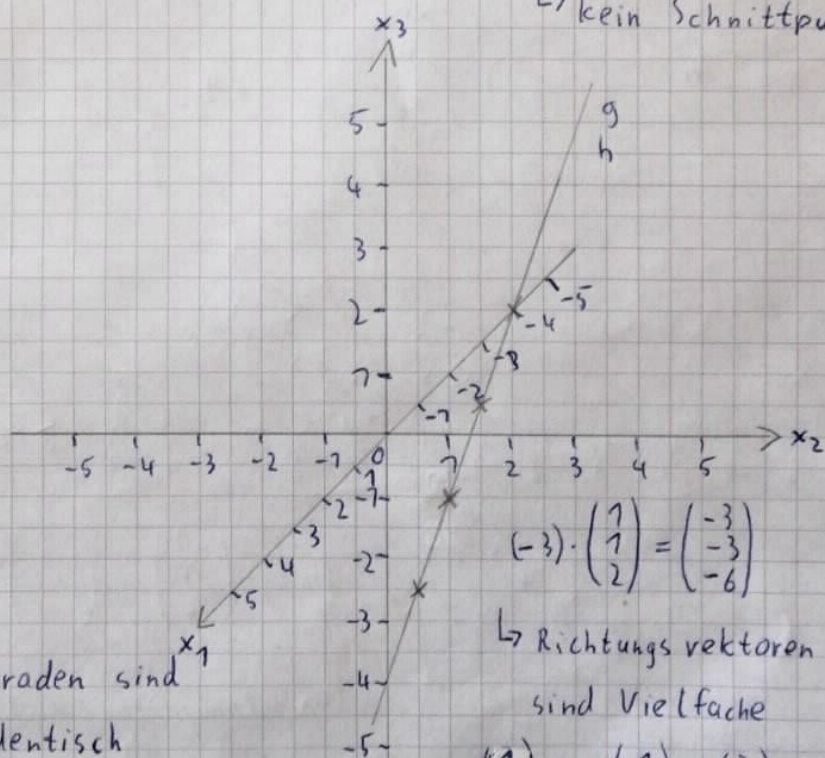 kein Schnittpu
x₃
g
h
5
4
3
2
1
-5
-4
-3
-2
-1
-5 -4 -3 -2 -1 0 1 2 3 4 5 x₂
1
2
3
4
5
x₁
-1
-2
-3
-4
-5
(-3) · (1 1 2) = (-3 -3 -6)
↳ Richtungsvektoren
sind Vielfache
raden sind
dentisch